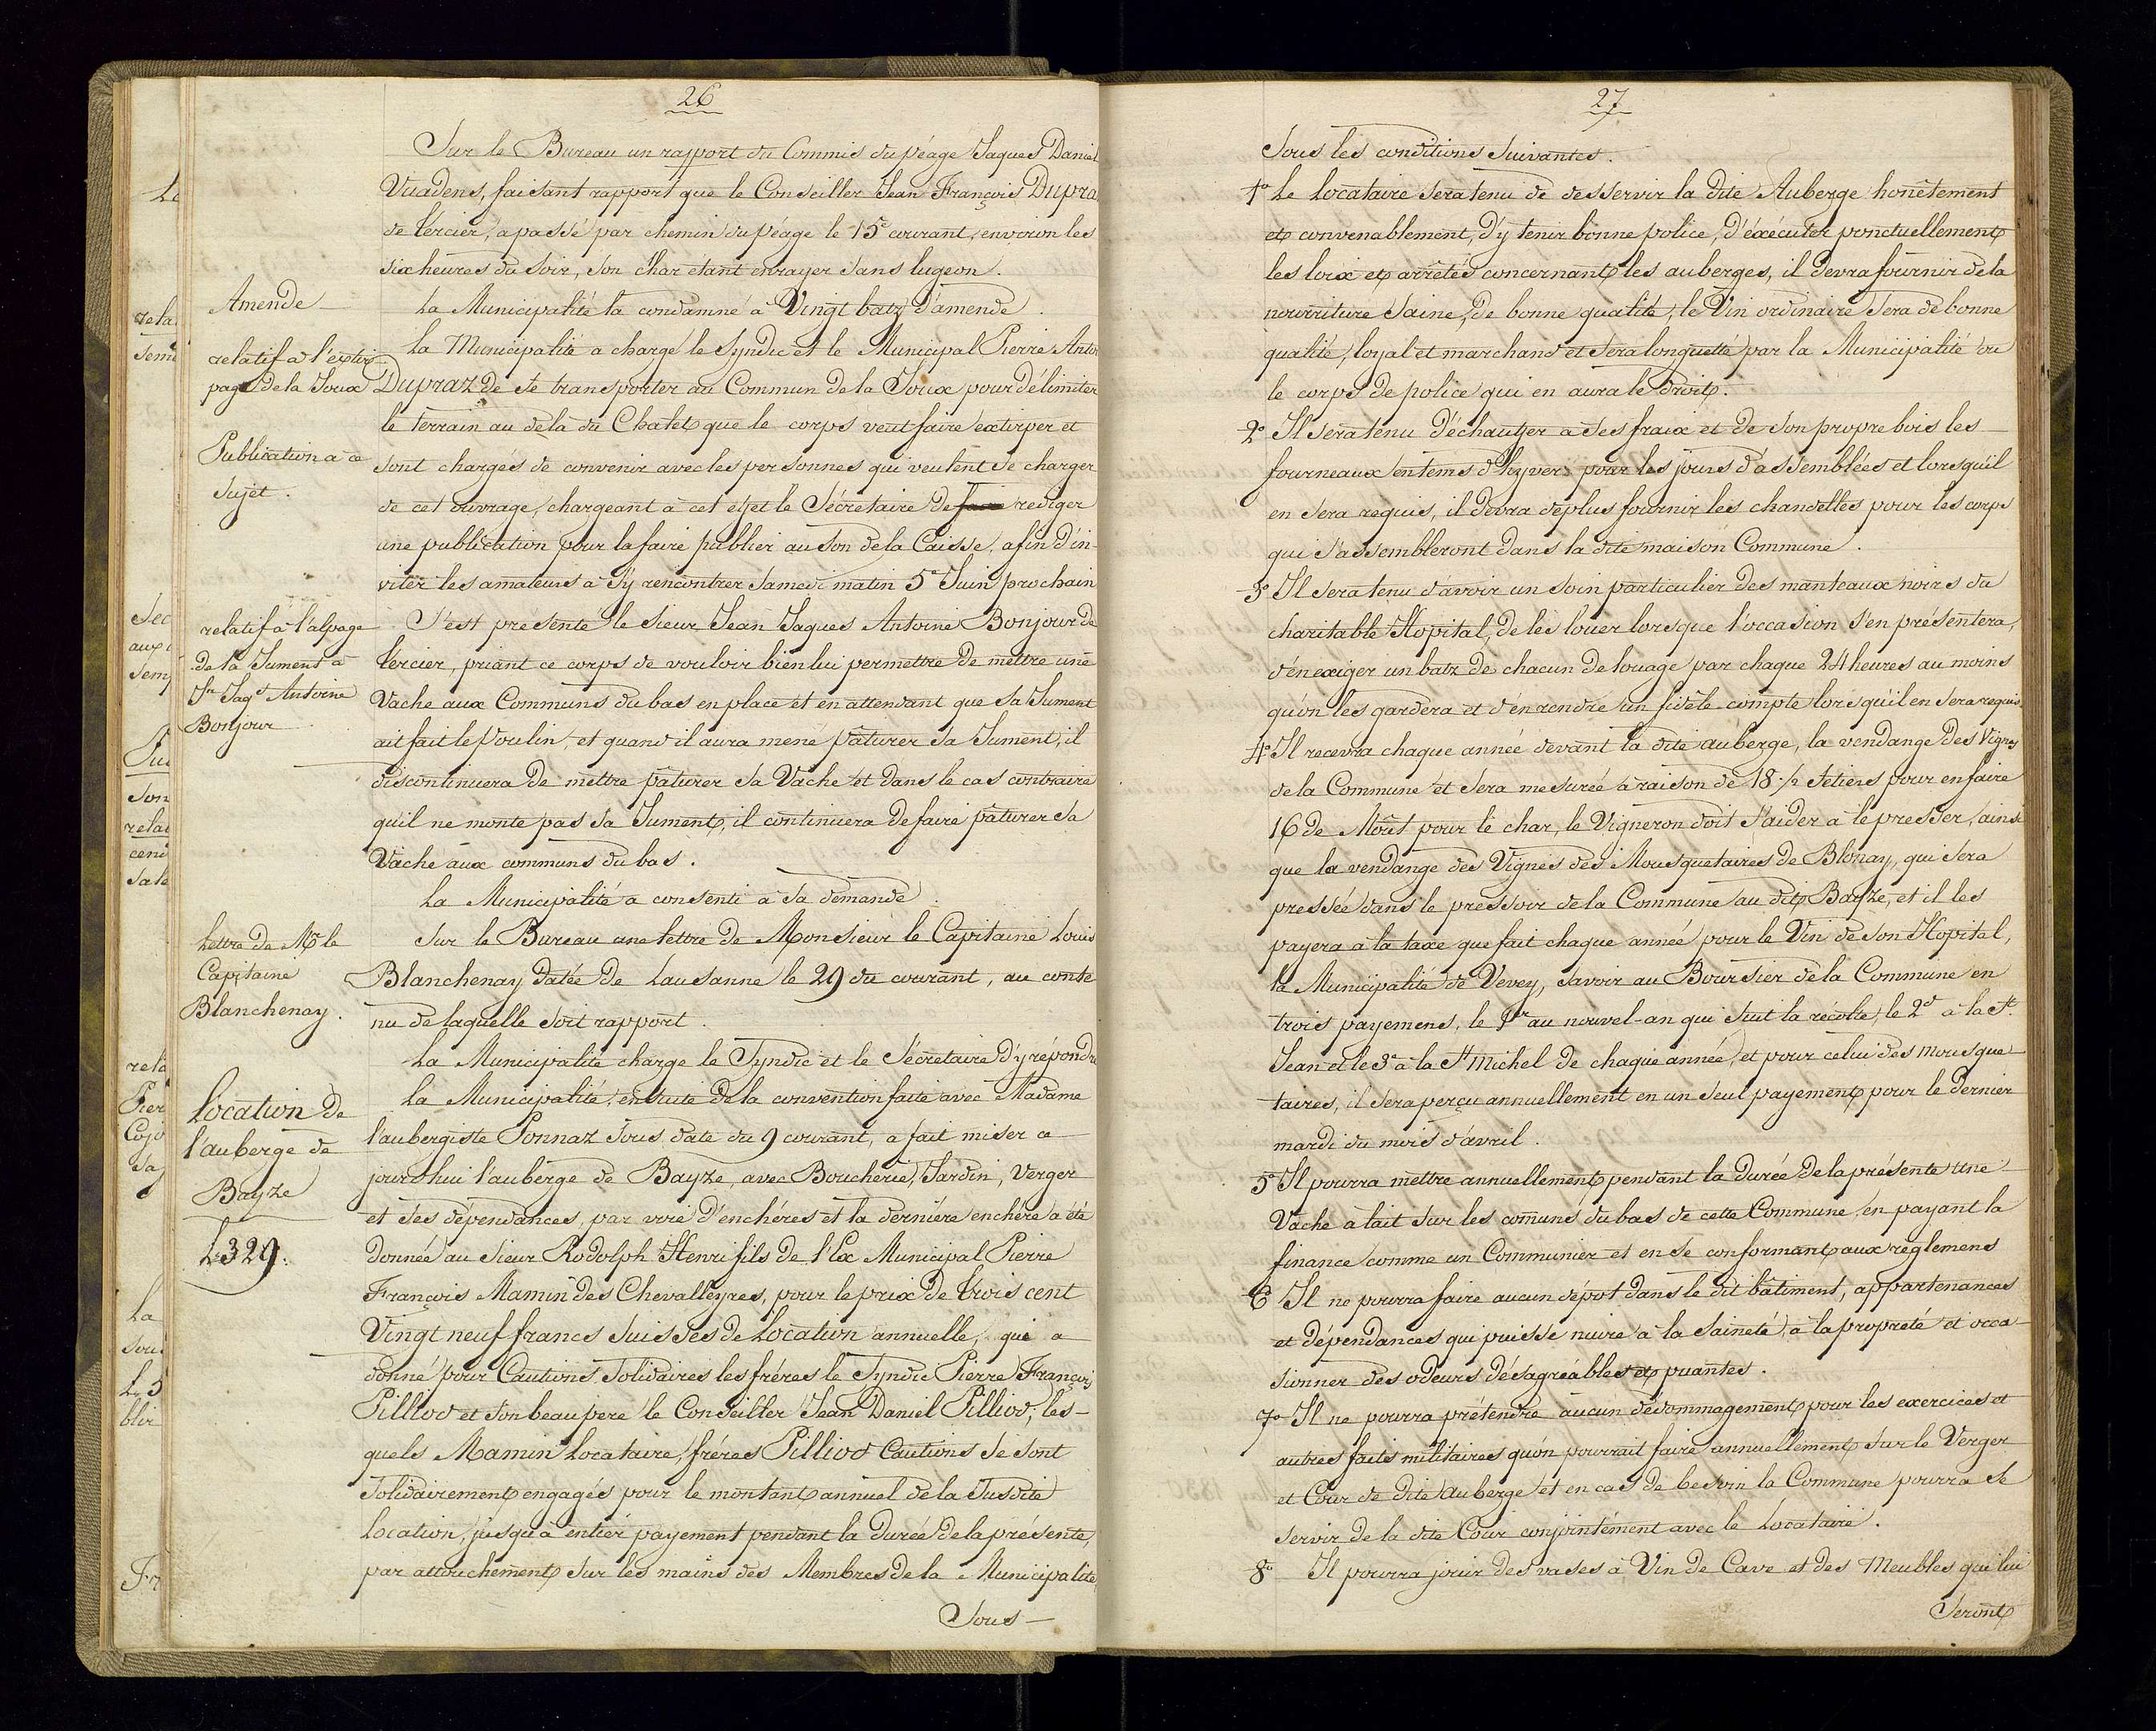 26
Sur le Bureau un rapport du Commis du péage Jaques Daniel
Vuadens, faisant rapport que le Conseiller Jean François Dupra
de Tercier, a passé par chemin du péage le 15e courant, environ les
six heures du soir, son char étant enrayer sans lugeon.
Amende
La Municipalité l'a condamné à Vingt batz d'amende.
relatif a l'extir
page de la Joux
La Municipalité a chargé le Syndic et le Municipal Pierre Anto
Dupraz de se transporter au Commun de la Joux pour délimiter
le terrain au delà du Chalet que le corps veut faire extirper et
Publication a ce
sujet.
sont chargés de convenir avec les personnes qui veulent se charger
de cet ouvrage, chargeant à cet effet le Sécrétaire de faire rediger
une publication pour la faire publier au son de la Caisse, afin d'in-
viter les amateurs à s'y rencontrer samedi matin 5e Juin prochain
relatif à l'alpage
de la Jument à
Jn Jaqs Antoine
Bonjour
S'est présenté le sieur Jean Jaques Antoine Bonjour de
Tercier, priant ce corps de vouloir bien lui permettre de mettre une
Vache aux Communs du bas en place et en attendant que sa Jument
ait fait le Poulin, et quand il aura mené pâturer sa Jument, il
discontinuera de mettre pâturer sa Vache et dans le cas contraire
qu'il ne monte pas sa Jument, il continuera de faire pâturer sa
Vache aux communs du bas.
La Municipalité a consenti à sa demande
Lettre de Mr le
Capitaine
Blanchenay.
Sur le Bureau une lettre de Monsieur le Capitaine Louis
Blanchenay datée de Lausanne le 29 du courant, au conte
nu de laquelle soit rapport.
La Municipalité charge le Syndic et le Sécrétaire d'y répondre
Location de
l'auberge de
Bayze
L. 329.
La Municipalité, ensuite de la convention faite avec Madame
l'aubergiste Ponnaz sous date du 9 courant, a fait miser ce
jourd'hui l'auberge de Bayze, avec Boucherie, Jardin, Verger
et ses dépendances, par voie d'enchéres et la dernière enchére a été
donnée au sieur Rodolph Henri fils de l'Ex Municipal Pierre
François Mamin des Chevalleyres, pour le prix de trois cent
Vingt neuf francs suisses de Location annuelle, qui a
donné pour Cautions Solidaires les fréres le Syndic Pierre François
Pilliod et son beau pere le Conseiller Jean Daniel Pilliod, les-
quels Mamin Locataire, fréres Pilliod Cautions se sont
solidairement engagés pour le montant annuel de la susdite
Location, jusqu'à entier payement pendant la durée de la présente,
par attouchement sur les mains des Membres de la Municipalité,
Sous
27
Sous les conditions suivantes.
1o Le Locataire sera tenu de desservir la dite Auberge honêtement
et convenablement, d'y tenir bonne police, d'éxécuter ponctuellement
les loix et arrêtés concernant les auberges, il devra fournir de la
nourriture saine, de bonne qualité, le Vin ordinaire sera de bonne
qualité, loyal et marchand et sera longuetté par la Municipalité ou
le corps de police qui en aura le droit.
2o Il sera tenu d'échauffer a ses fraix et de son propre bois les
fourneaux en tems d'hyver pour les jours d'assemblées et lorsqu'il
en sera requis, il devra de plus fournir les chandelles pour les corps
qui s'assembleront dans la dite maison Commune.
3o Il sera tenu d'avoir un soin particulier des manteaux noirs du
charitable Hopital, de les louer lorsque l'occasion s'en présentera,
d'en exiger un batz de chacun de louage par chaque 24 heures au moins
qu'on les gardera et d'en rendre un fidèle compte lorsqu'il en sera requis
4o Il recevra chaque année devant la dite auberge, la vendange des Vignes
de la Commune et sera mesurée à raison de 18 1/2 setiers pour en faire
16 de Moût pour le char, le Vigneron doit s'aider a le presser, ainsi
que la vendange des Vignes des Mousquetaires de Blonay, qui sera
pressée dans le pressoir de la Commune au dit Bayze, et il les
payera à la taxe que fait chaque année pour le Vin de son Hopital,
la Municipalité de Vevey, savoir au Boursier de la Commune en
trois payemens, le 1er au nouvel-an qui suit la récolte, le 2d à la St.
Jean et le 3e à la St Michel de chaque année, et pour celui des mousque
taires, il sera perçu annuellement en un seul payement pour le dernier
mardi du mois d'avril.
5o Il pourra mettre annuellement pendant la durée de la présente une
Vache à lait sur les comuns du bas de cette Commune en payant la
finance comme un Communier et en se conformant aux réglemens
6o Il ne pourra faire aucun dépot dans le dit bâtiment, appartenances
et dépendances qui puisse nuire à la saineté, à la propreté et occa-
sionner des odeurs désagréables et puantes.
7o Il ne pourra prétendre aucun dédommagement pour les exercices et
autres faits militaires qu'on pourrait faire annuellement sur le Verger
et Cour de dite auberge et en cas de besoin la Commune pourra se
servir de la dite Cour conjointément avec le Locataire.
8o Il pourra jouir des vases à Vin de Cave et des Meubles qui lui
seront